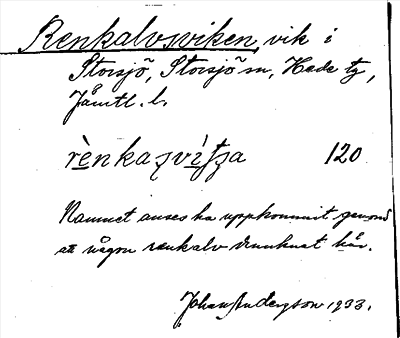 Renkalvsviken, vik i
Storsjö, Storsjö sn, Hede tg,
Jämtl. l.
rènkaʒvìʃʒa 120
Namnet anses ha uppkommit genom
att någon renkalv drunknat här.
Johan Anderzson 1933.